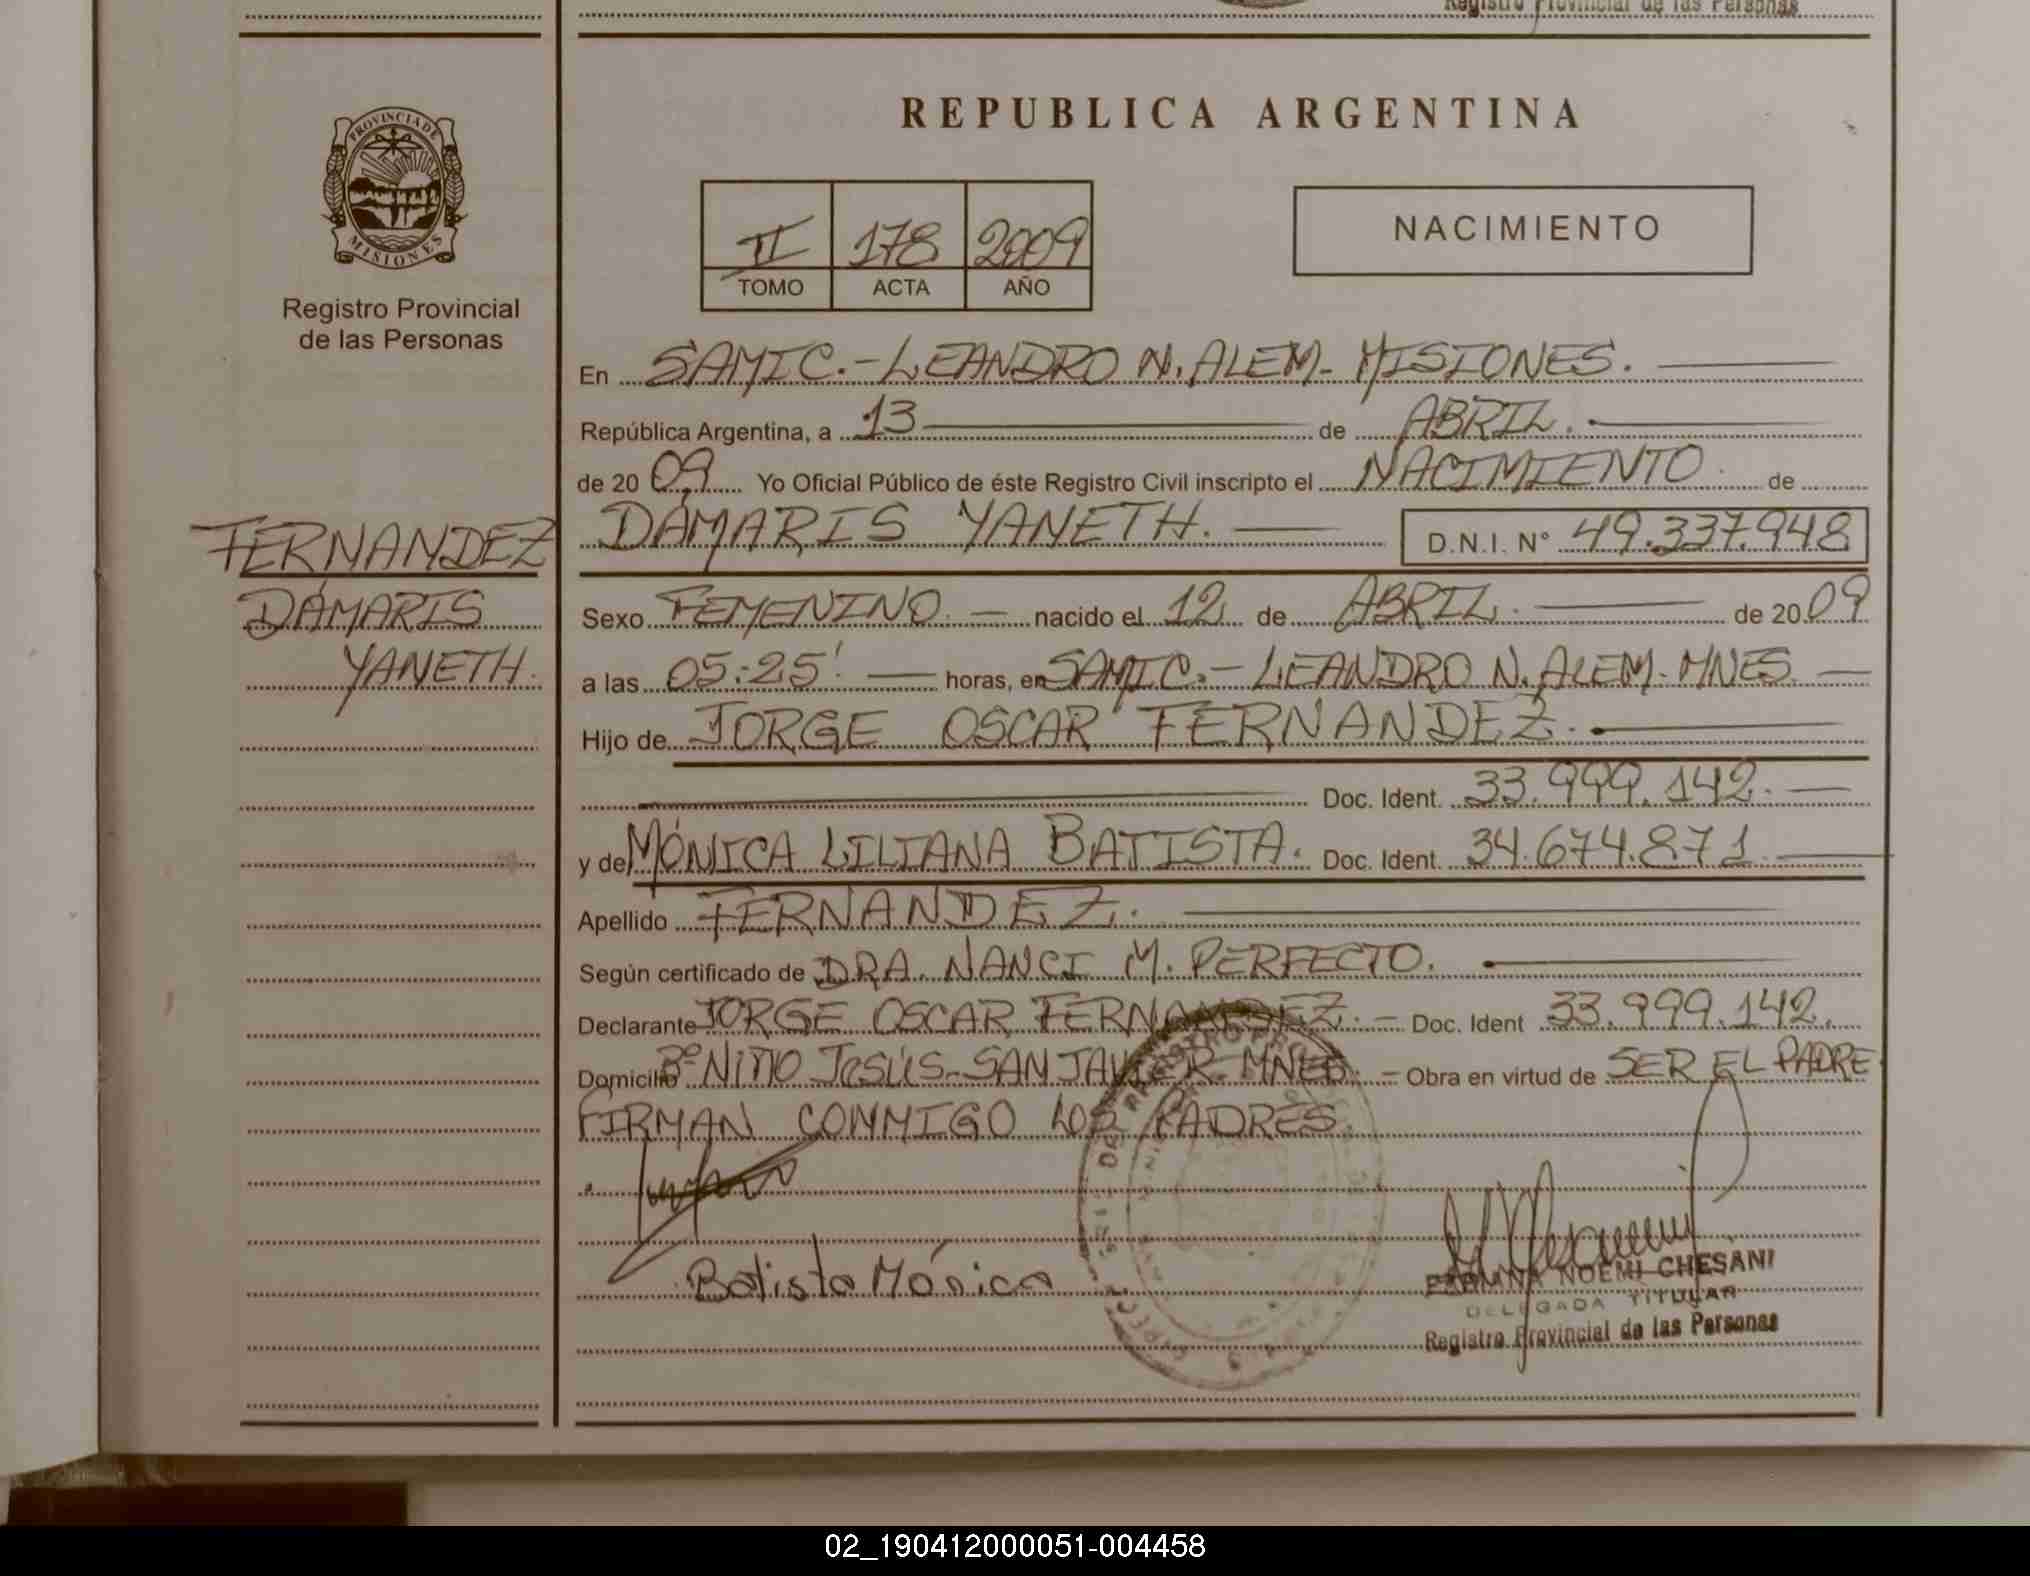 Registro Provincial de las Personas
PROVINCIA DE
MISIONES
Registro Provincial
de las Personas
FERNANDEZ
DÁMARIS
YANETH.
REPUBLICA ARGENTINA
II 178 2009
TOMO ACTA AÑO
NACIMIENTO
En SAMIC.-LEANDRO N. ALEM- MISIONES.
República Argentina, a 13 de ABRIL.
de 2009 Yo Oficial Público de éste Registro Civil inscripto el NACIMIENTO de
DÁMARIS YANETH. D.N.I. N° 49.337.948
Sexo FEMENINO. nacido el 12 de ABRIL. de 2009
a las 05:25' horas, en SAMIC.- LEANDRO N. ALEM- MNES.
Hijo de JORGE OSCAR FERNANDEZ.
Doc. Ident. 33.999.142.
y de MÓNICA LILIANA BATISTA. Doc. Ident. 34.674.871
Apellido FERNANDEZ.
Según certificado de DRA. NANCI M. PERFECTO.
Declarante JORGE OSCAR FERNANDEZ. Doc. Ident 33.999.142.
Domicilio Bº NIÑO JESÚS- SAN JAVIER- MNES. Obra en virtud de SER EL PADRE
FIRMAN CONMIGO LOS PADRES
Batista Mónica
NOEMI CHESANI
DELEGADA TITULAR
Registro Provincial de las Personas
02_190412000051-004458